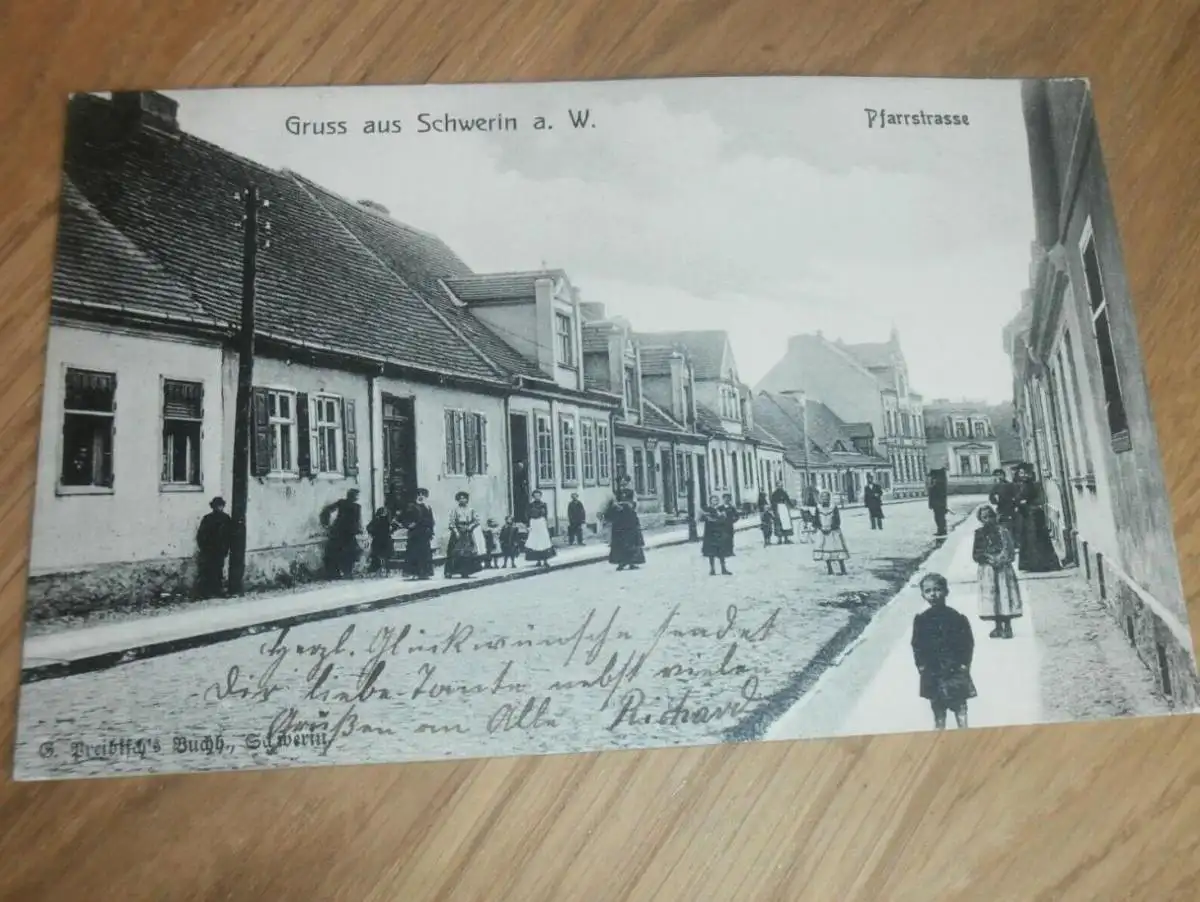 Gruss aus Schwerin a. W.
Pfarrstrasse
Herzl. Glückwünsche sendet
Dir liebe Tante nebst vielen
Grüßen an Alle Richard
G. Preibisch's Buchh., Schwerin